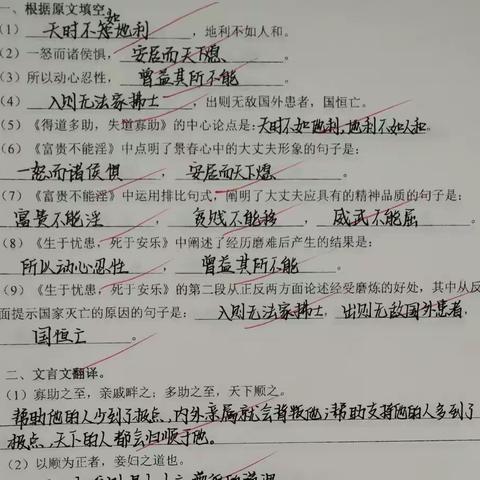 一、根据原文填空。
（1）天时不如地利，地利不如人和。
（2）一怒而诸侯惧，安居而天下熄。
（3）所以动心忍性，曾益其所不能。
（4）入则无法家拂士，出则无敌国外患者，国恒亡。
（5）《得道多助，失道寡助》的中心论点是：天时不如地利,地利不如人和。
（6）《富贵不能淫》中点明了景春心中的大丈夫形象的句子是：
一怒而诸侯惧，安居而天下熄。
（7）《富贵不能淫》中运用排比句式，阐明了大丈夫应具有的精神品质的句子是：
富贵不能淫，贫贱不能移，威武不能屈。
（8）《生于忧患，死于安乐》中阐述了经历磨难后产生的结果是：
所以动心忍性，曾益其所不能。
（9）《生于忧患，死于安乐》的第二段从正反两方面论述经受磨炼的好处，其中从反
面提示国家灭亡的原因的句子是：入则无法家拂士，出则无敌国外患者，
国恒亡。
二、文言文翻译。
（1）寡助之至，亲戚畔之；多助之至，天下顺之。
帮助他的人少到了极点、内外亲属就会背叛他;帮助支持他的人多到了
极点、天下的人都会归顺于他。
（2）以顺为正者，妾妇之道也。